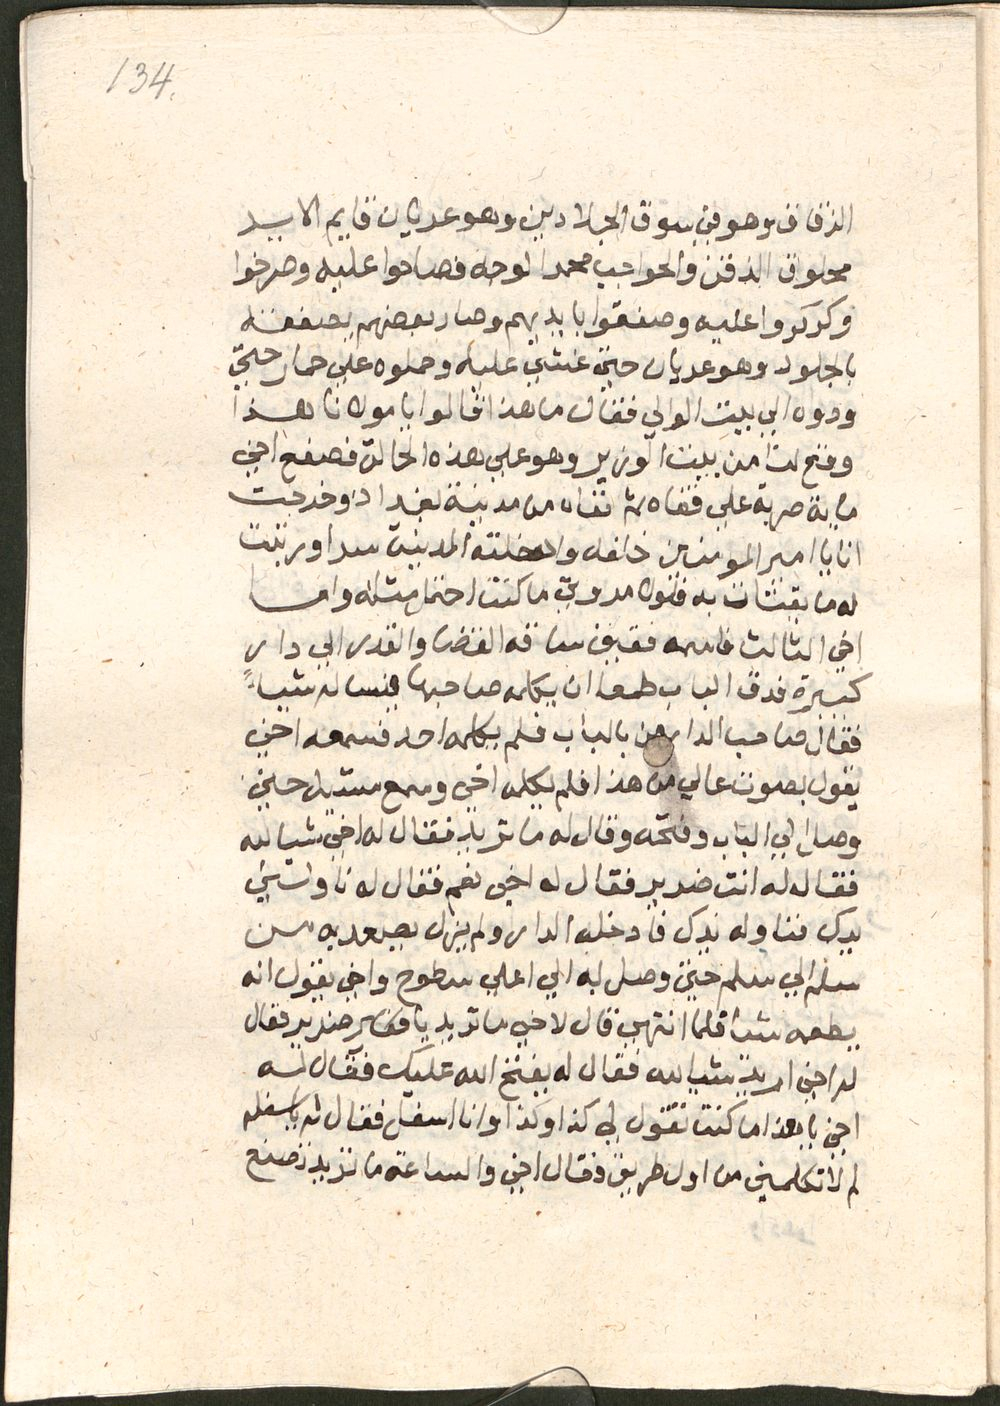 134.
الزقاق وهو في سوق الجلادين وهو عريان قايم الايــر
محلوق الذقن والحواجب محمر الوجه فصاحوا عليه وصرخوا
وكركروا عليه وصفقوا بايديهم وصار بعضهم يصفعه
بالجلود وهو عريان حتى غشي عليه وحملوه على حمار حتى
ودوه الى بيت الوالي فقال ما هذا قالوا يا مولانا هذا
وقع لنا من بيت الوزير وهو على هذه الحالة فصفع اخي
ماية ضربة على قفاه ثم نفاه من مدينة بغداد وخرجت
انا يا امير المومنين خلفه وادخلته المدينة سرا ورتبت
له ما يقتات به فلولا مروتي ما كنت احتمل مثله واما
اخي الثالث فاسمه فقيق ساقه القضا والقدر الى دار
كبيرة فدق الباب طمعا ان يكلمه صاحبها فيساله شياً
فقال صاحب الدار من بالباب فلم يكلمه احد فسمعه اخي
يقول بصوت عالي من هذا فلم يكلمه اخي وسمع مشيه حتى
وصل الى الباب وفتحه وقال له ما تريد فقال له اخي شيا لله
فقال له انت ضرير فقال له اخي نعم فقال له ناولني
يدك فناوله يدك فادخله الدار ولم يزل يصعد به من
سلم الى سلم حتى وصل به الى اعلى سطوح واخي يقول انه
يطعمه شيا فلما انتهى قال لاخي ما تريد يا ضرير فقال
له اخي اريد شيا لله فقال له يفتح الله عليك فقال له
اخي يا هذا ما كنت تقول لي كذا وكذا وانا اسفل فقال له يا سفله
لم لا تكلمني من اول طريق فقال اخي والساعة ما تريد تصنع